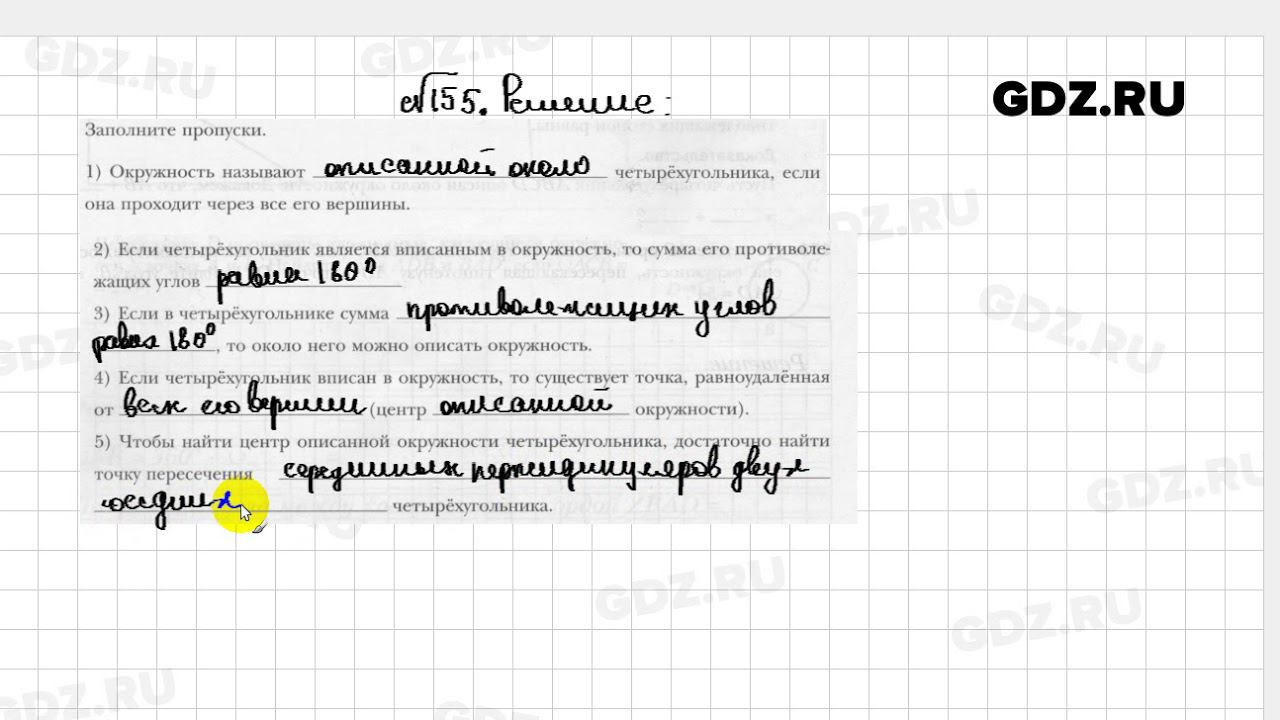 GDZ.RU
GDZ.RU
№155. Решение:
GDZ.RU
Заполните пропуски.
1) Окружность называют описанной около четырёхугольника, если
она проходит через все его вершины.
GDZ.RU
2) Если четырёхугольник является вписанным в окружность, то сумма его противоле-
жащих углов равна 180°
3) Если в четырёхугольнике сумма противолежащих углов
равна 180°, то около него можно описать окружность.
GDZ.RU
GDZ.RU
4) Если четырёхугольник вписан в окружность, то существует точка, равноудалённая
от всех его вершин (центр описанной окружности).
5) Чтобы найти центр описанной окружности четырёхугольника, достаточно найти
точку пересечения серединных перпендикуляров двух
четырёхугольника.
GDZ.RU
GDZ.RU
GDZ.RU
GDZ.RU
GDZ.RU